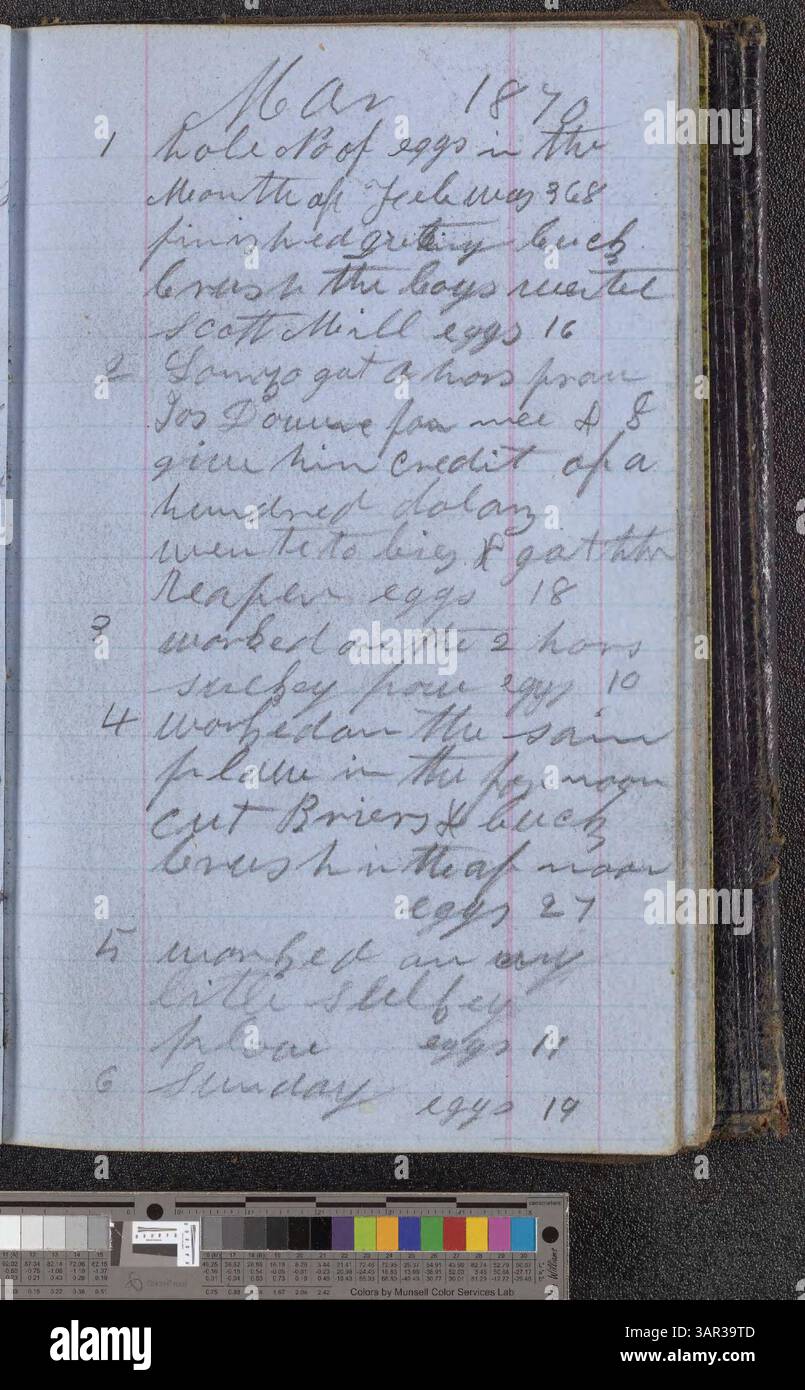 Mar 1870
1 hole No of eggs in the
Month of Feb was 368
finished grubing buck
brush the boys went
Scott Mill eggs 16
2 got a hors from
Jos for mee & I
give him credit of a
hundred dolars
went to & got
Reaper eggs 18
3 worked on the 2 hors
sulkey plow eggs 10
4 worked on the saim
plow in the for noon
cut Briers & buck
brush in the af noon
eggs 27
5 worked on my
little sulkey
plow eggs 11
6 Sunday eggs 19
alamy
a
centimeters
Colors by Munsell Color Services Lab
alamy
Image ID: 3AR39TD
www.alamy.com